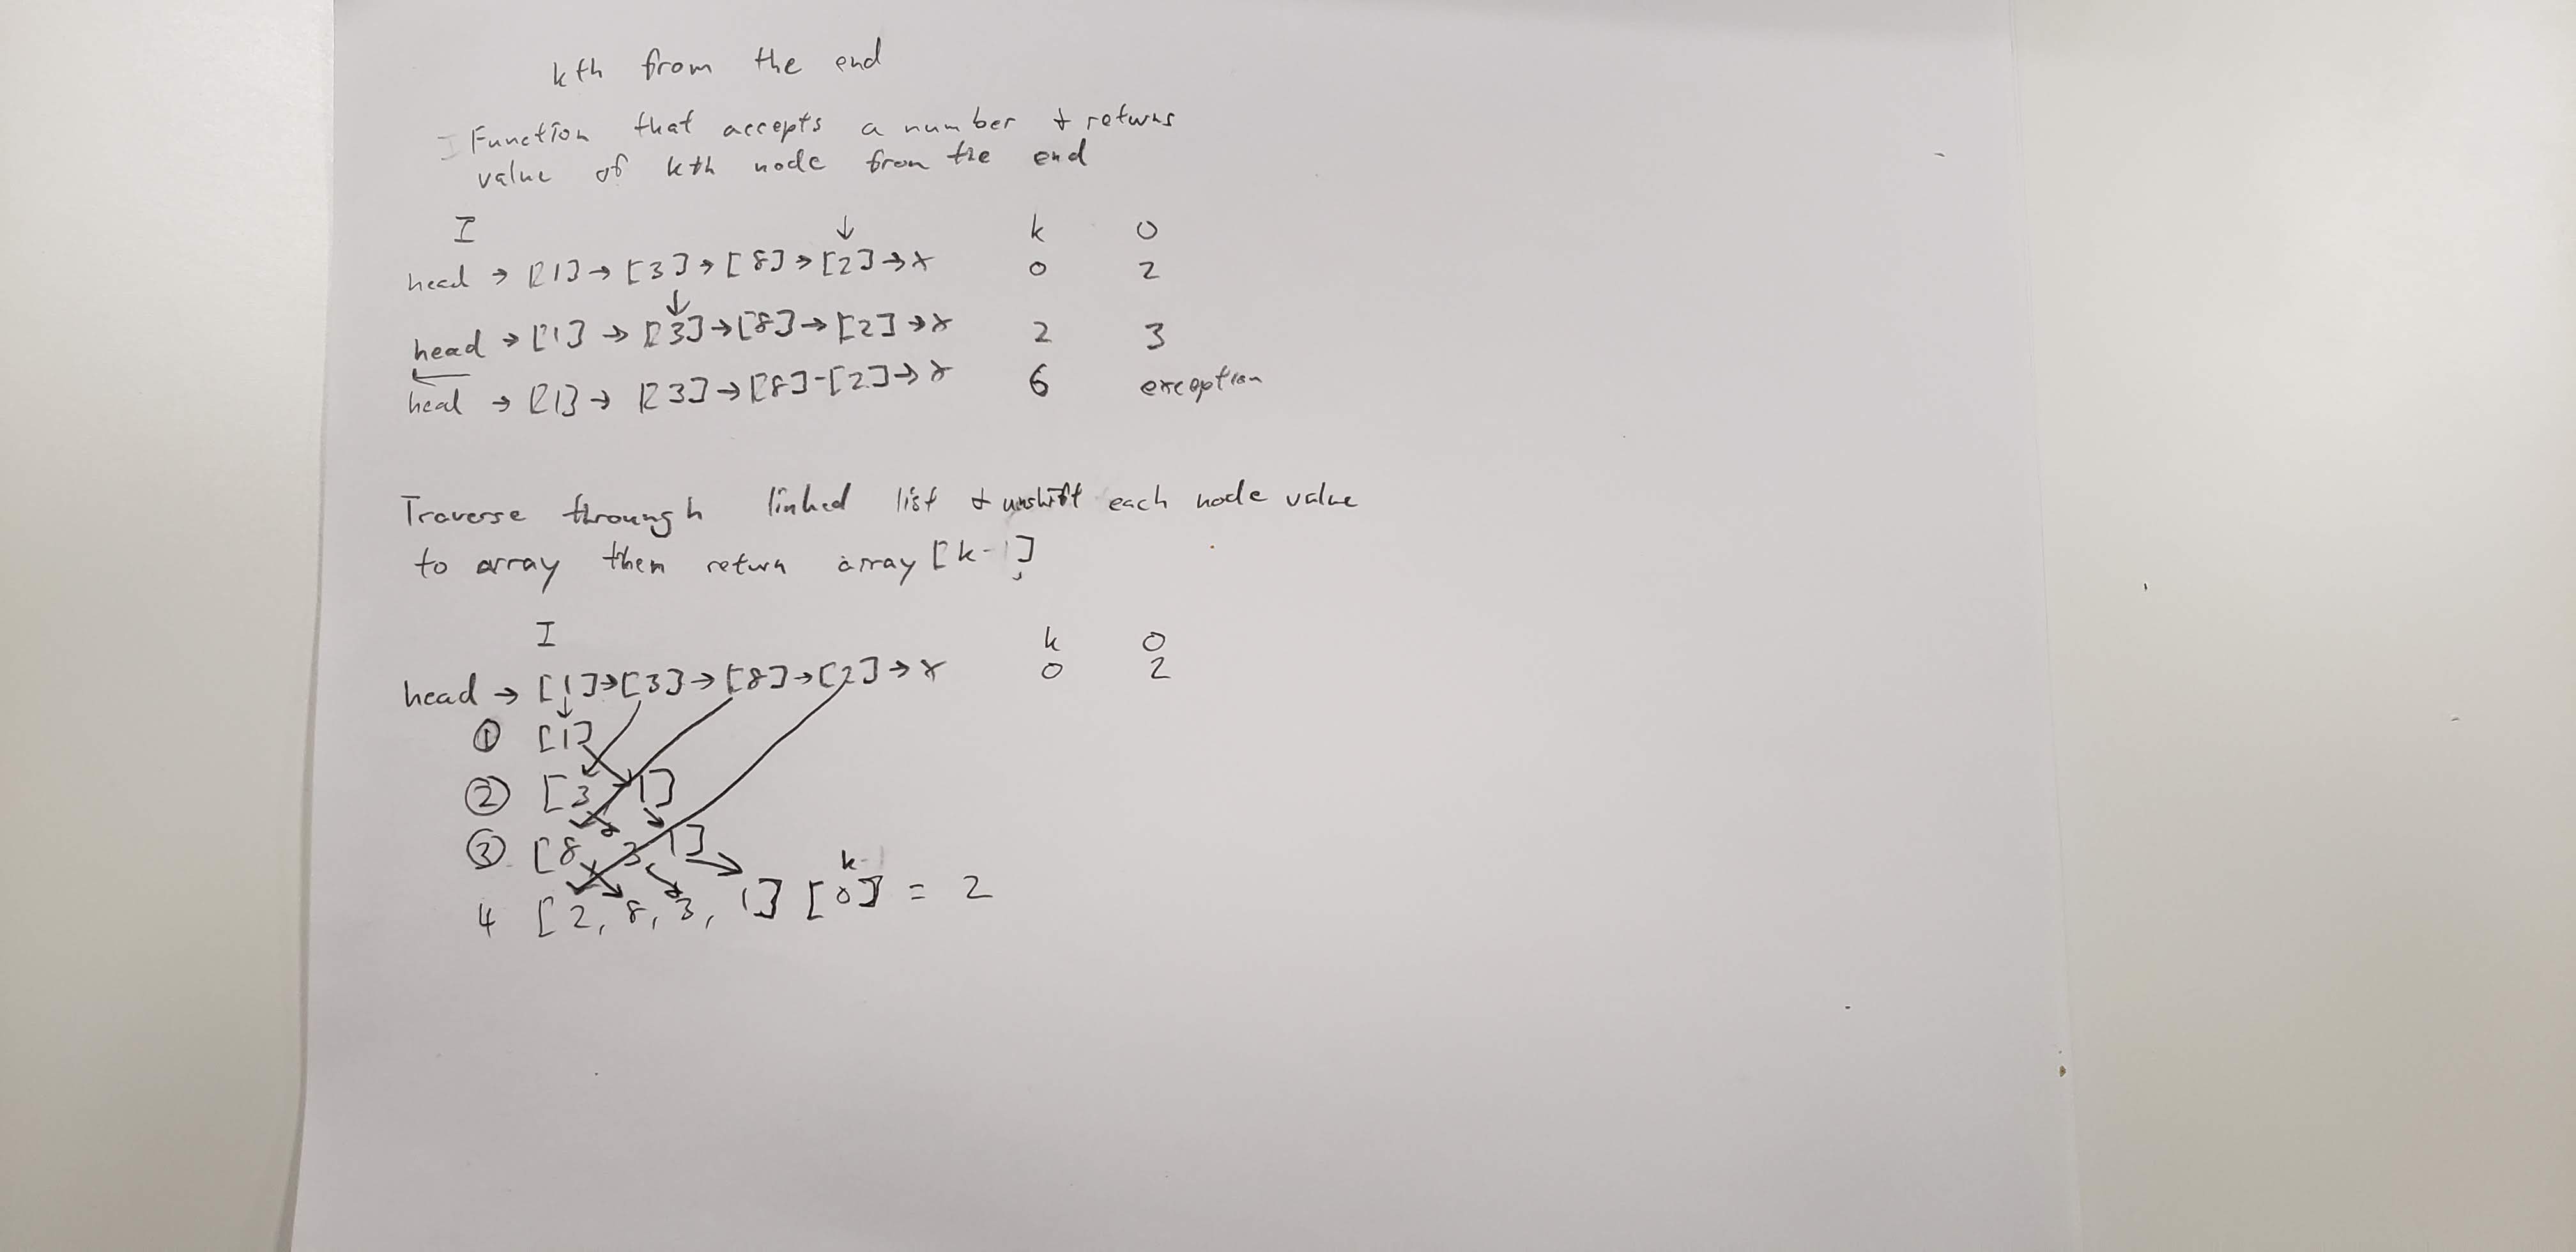 kth from the end
I Function that accepts a number + returns
value of kth node from the end
I k O
head → [1] → [3] → [8] → [2] → x 0 2
head → [1] → [3] → [8] → [2] → x 2 3
head → [1] → [3] → [8] - [2] → x 6 exception
Traverse through linked list + unshift each node value
to array then return array [k-1];
I k O
head → [1] → [3] → [8] → [2] → x 0 2
① [1]
② [3, 1]
③ [8, 3, 1] k-1
4 [2, 8, 3, 1] [0] = 2